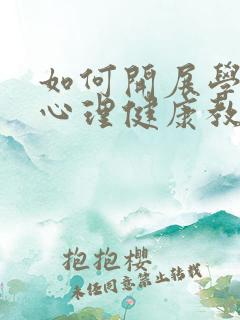 如何開展學
心理健康教
抱抱櫻
未經同意禁止轉載